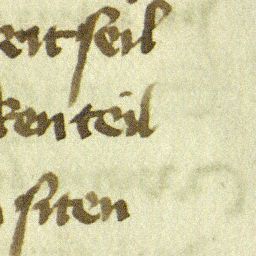 reit seil
ken teil
siten